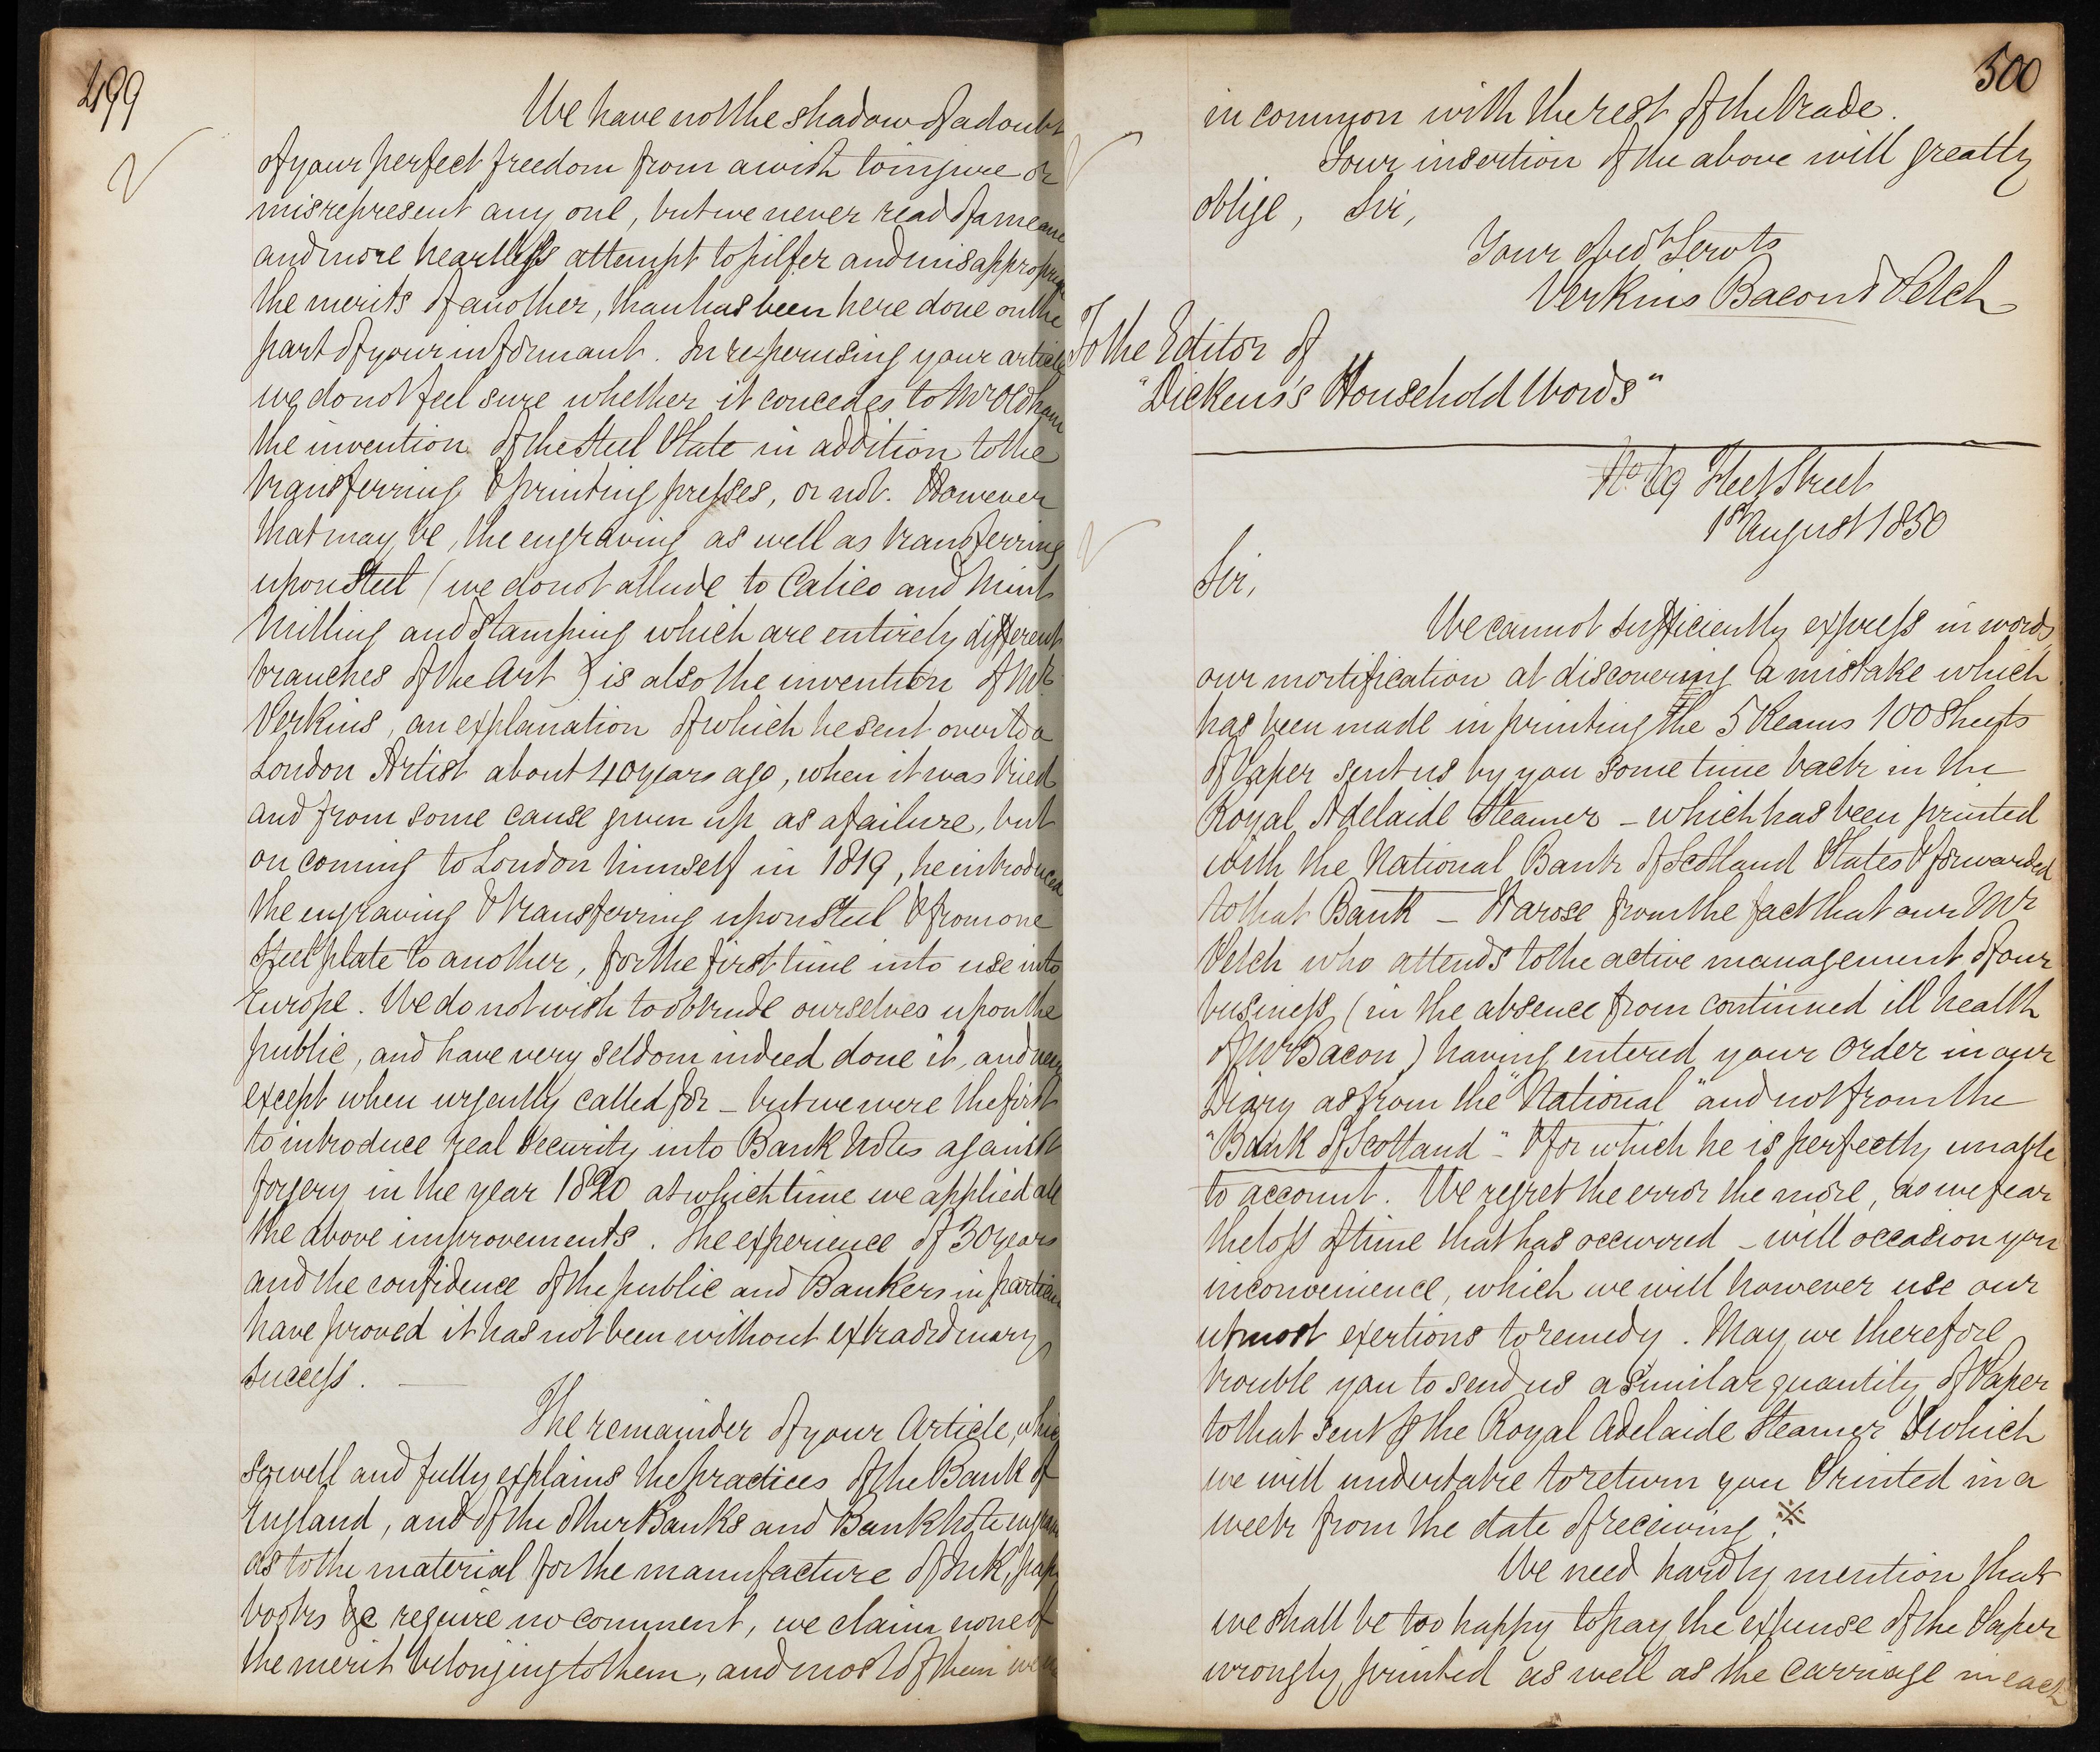 499
We have not the shadow of a doubt
of your perfect freedom from a wish to injure or
misrepresent any one, but we never read of a meane
and more heartless attempt to pilfer and misappropri
the merits of another, than has been here done on the
part of your informant. In re-perusing your article
we do not feel sure whether it concedes to Mr Oldham
the invention of the Steel Plate in addition to the
transferring & printing presses, or not. However
that may be, the engraving as well as transferring
upon Steel (we do not allude to Calico and Mint
Milling and Stamping which are entirely different
branches of the Art) is also the invention of Mr
Perkins, an explanation of which he sent over to a
London Artist about 40 years ago, when it was tried
and from some cause given up as a failure, but
on coming to London himself in 1819, he introduced
the engraving & transferring upon Steel & from one
Steel plate to another, for the first time into use into
Europe. We do not wish to obtrude ourselves upon the
public, and have very seldom indeed done it, and
except when urgently called for - but we were the first
to introduce real Security into Bank Notes against
forgery in the year 1820 at which time we applied all
the above improvements. The experience of 30 years
and the confidence of the public and Bankers in particu
have proved it has not been without extraordinary
success.
The remainder of your Article, whic
so well and fully explains the practices of the Bank of
England, and of the other Banks and Bank Note
as to the material for the manufacture of Ink, pap
books &c require no comment, we claim none of
the merit belonging to them, and most of them
500
in common with the rest of the trade.
Your insertion of the above will greatly
oblige, Sir,
Your Obed Servts
Perkins Bacon & Petch
To the Editor of
"Dickens's Household Words"
No 69 Fleet Street
1st August 1850
Sir,
We cannot sufficiently express in words
our mortification at discovering a mistake which
has been made in printing the 5 Reams 100 Sheets
of Paper sent us by you some time back in the
Royal Adelaide Steamer - which has been printed
with the National Bank of Scotland Plates & forwarded
to that Bank - It arose from the fact that our Mr
Petch who attends to the active management of our
business (in the absence from continued ill health
of Mr Bacon) having entered your order in our
Diary as from the "National" and not from the
"Bank of Scotland" - & for which he is perfectly unable
to account. We regret the error the more, as we fear
the loss of time that has occurred - will occasion you
inconvenience, which we will however use our
utmost exertions to remedy. May we therefore
trouble you to send us a similar quantity of Paper
to that sent the Royal Adelaide Steamer & which
we will undertake to return you Printed in a
week from the date of receiving. ※
We need hardly mention that
we shall be too happy to pay the expense of the Paper
wrongly printed as well as the carriage in each